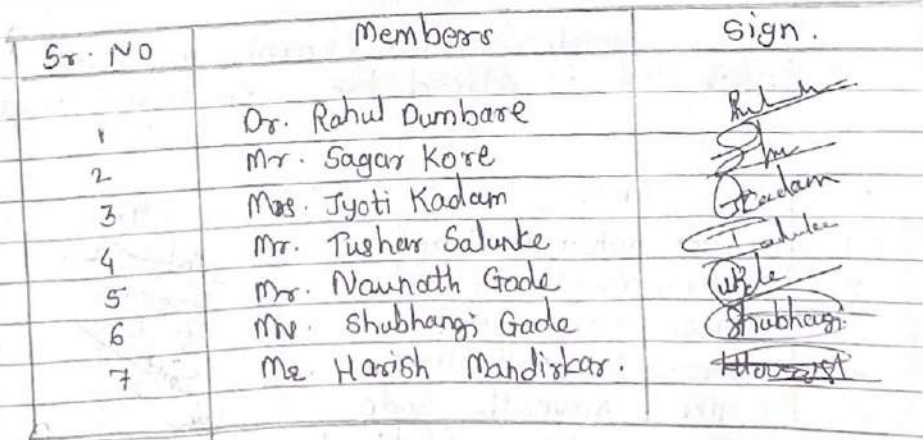 Sr. No Members Sign.
1 Dr. Rahul Dumbare
2 Mr. Sagar Kore
3 Mrs. Jyoti Kadam Jkadam
4 Mr. Tushar Salunke
5 Mr. Navnath Gade
6 Shubhangi Gade Shubhangi
7 Harish Mandirkar.